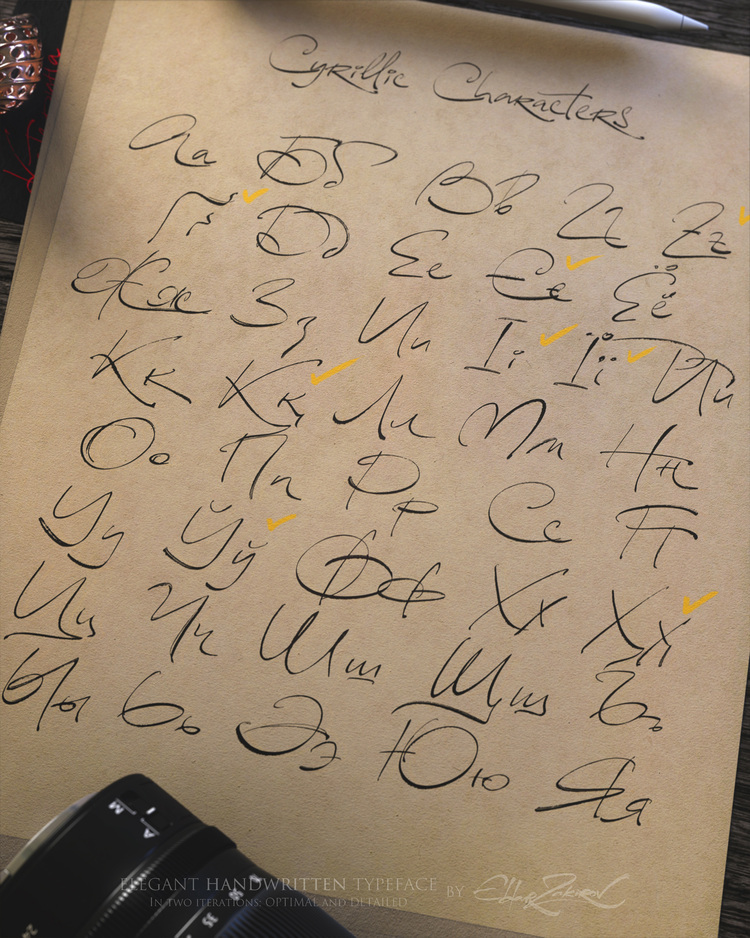 Cyrillic Characters
Аа Бб Вв Гг Ғғ
Ґґ Дд Ее Єє Ёё
Жж Зз Ии Іі Її Йй
Кк Ққ Лл Мм Нн
Оо Пп Рр Сс Тт
Уу Ўў Фф Хх Ҳҳ
Цц Чч Шш Щщ Ъъ
Ыы Ьь Ээ Юю Яя
M A
24 35
ELEGANT HANDWRITTEN TYPEFACE BY Eldar Zakirov
IN TWO ITERATIONS: OPTIMAL AND DETAILED